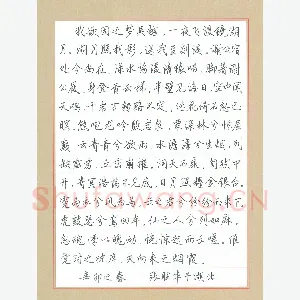 我欲因之梦吴越，一夜飞渡镜湖
月。湖月照我影，送我至剡溪。谢公宿
处今尚在，渌水荡漾清猿啼。脚著谢
公屐，身登青云梯。半壁见海日，空中闻
天鸡。千岩万转路不定，迷花倚石忽已
暝。熊咆龙吟殷岩泉，栗深林兮惊层
巅。云青青兮欲雨，水澹澹兮生烟。列
缺霹雳，丘峦崩摧。洞天石扉，訇然中
开。青冥浩荡不见底，日月照耀金银台。
霓为衣兮风为马，云之君兮纷纷而来下。
虎鼓瑟兮鸾回车，仙之人兮列如麻。
忽魂悸以魄动，恍惊起而长嗟。惟
觉时之枕席，失向来之烟霞。
辛卯之春